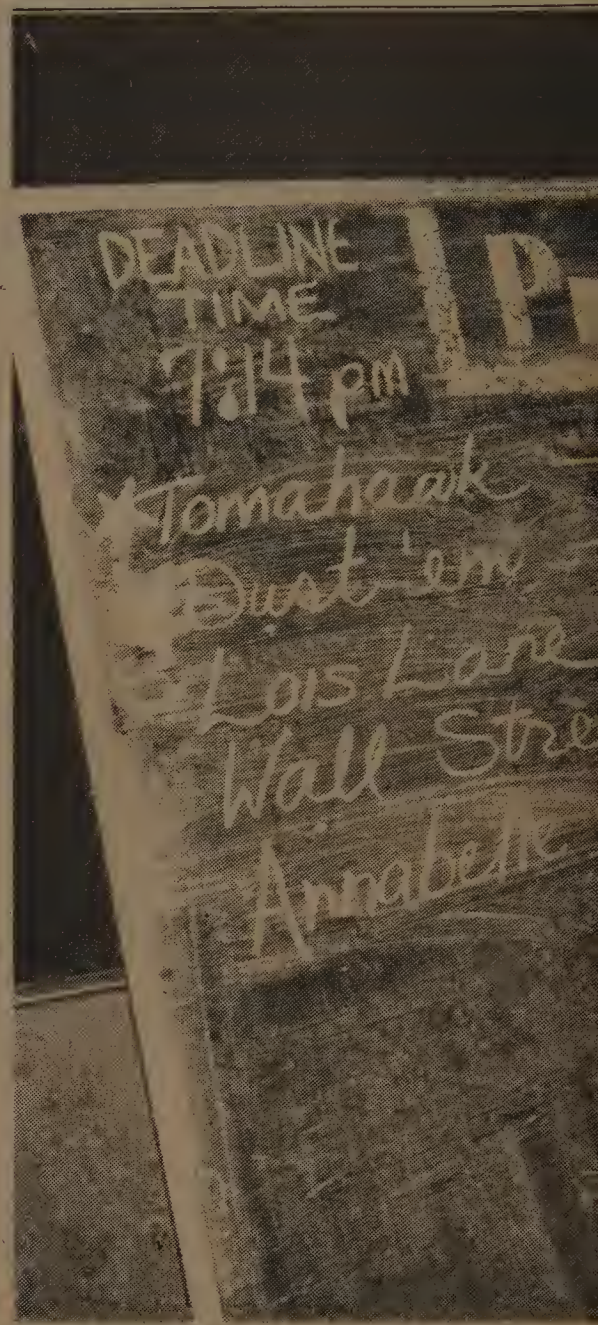 DEADLINE
TIME
7:14 pm
P
Tomahawk
Dust 'em
Lois Lane
Wall Stre
Annabelle